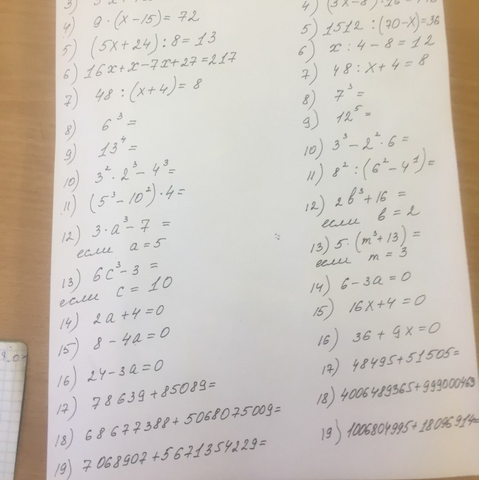 4) 9 · (x - 15) = 72
5) (5x + 24) : 8 = 13
6) 16x + x - 7x + 27 = 217
7) 48 : (x + 4) = 8
8) 6³ =
9) 13⁴ =
10) 3² · 2³ - 4³ =
11) (5³ - 10²) · 4 =
12) 3 · a³ - 7 =
если a = 5
13) 6c³ - 3 =
если c = 10
14) 2a + 4 = 0
15) 8 - 4a = 0
16) 24 - 3a = 0
17) 78639 + 85089 =
18) 68677388 + 5068075009 =
19) 7068907 + 5671354229 =
5) 1512 : (70 - x) = 36
6) x : 4 - 8 = 12
7) 48 : x + 4 = 8
8) 7³ =
9) 12⁵ =
10) 3³ - 2² · 6 =
11) 8² : (6² - 4¹) =
12) 2b³ + 16 =
если b = 2
13) 5 · (m³ + 13) =
если m = 3
14) 6 - 3a = 0
15) 16x + 4 = 0
16) 36 + 9x = 0
17) 48495 + 51505 =
18) 4006489365 + 999000463
19) 1006804995 + 18096914 =